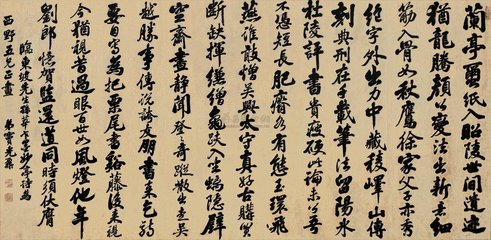 蘭亭繭紙入昭陵世間遺迹
猶龍騰顏公變法出新意細
筋入骨如秋鷹徐家父子亦秀
絕字外出力中藏稜嶧山傳
刻典刑在千載筆法留陽冰
杜陵評書貴瘦硬此論未公吾
不憑短長肥瘠各有態玉環飛
燕誰敢憎吳興太守真好古購買
斷缺揮縑繒龜趺入坐螭隱壁
空齋晝靜聞登登奇蹤散出走吳
越勝事傳說誇友朋書來乞詩
要自寫為把栗尾書谿藤後來視
今猶視昔過眼百世如風燈他年
劉郎憶賀監還道同時須服膺
臨東坡先生孫莘老墨妙亭詩為
西野五兄正 弟